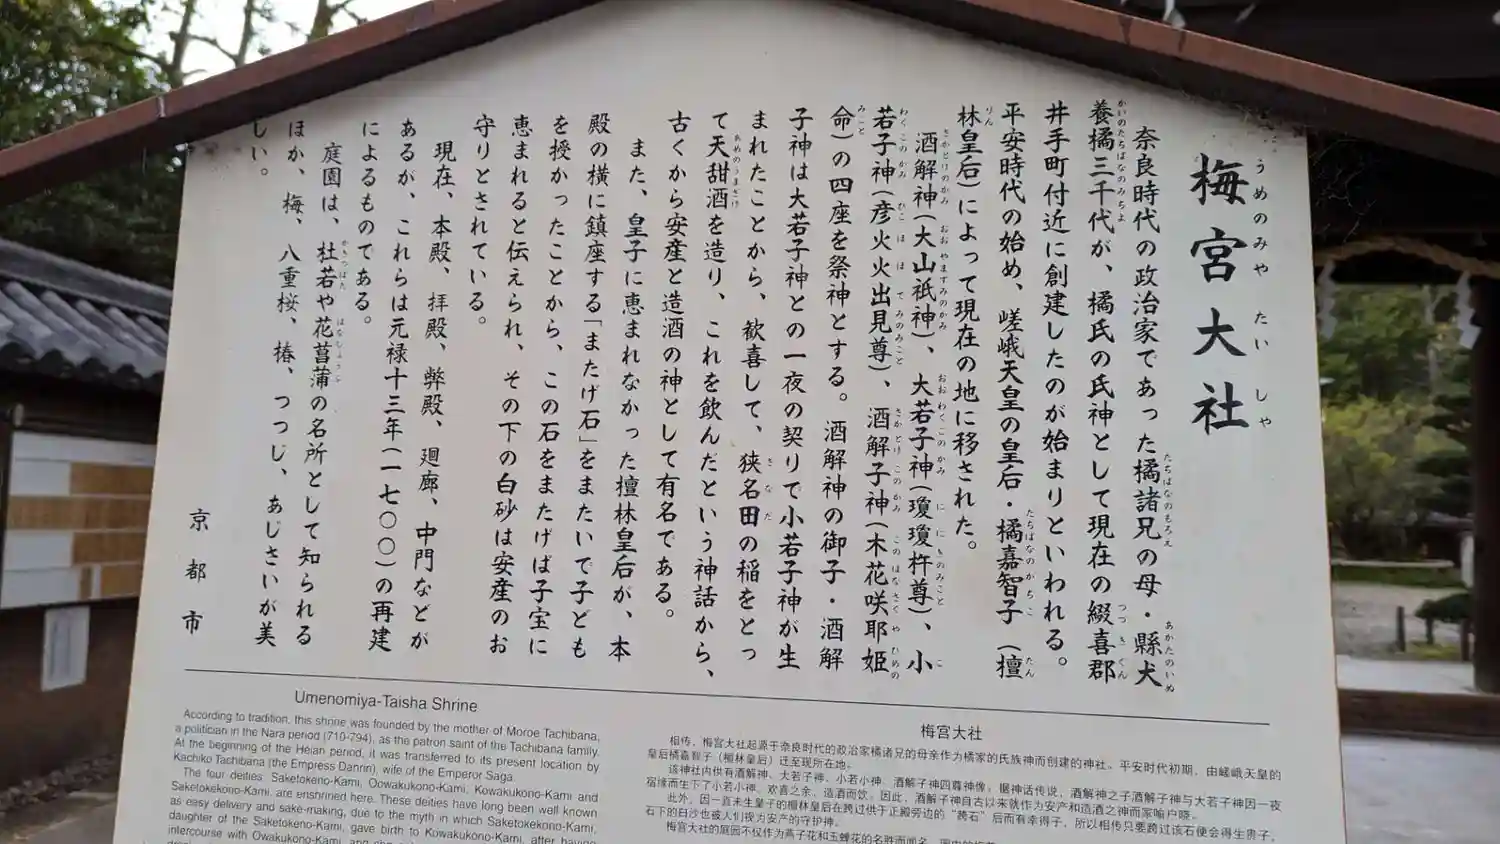 梅宮大社
うめのみや たいしゃ
奈良時代の政治家であった橘諸兄の母・縣犬
養橘三千代が、橘氏の氏神として現在の綴喜郡
井手町付近に創建したのが始まりといわれる。
平安時代の始め、嵯峨天皇の皇后・橘嘉智子（檀
林皇后）によって現在の地に移された。
酒解神（大山祇神）、大若子神（瓊瓊杵尊）、小
若子神（彦火火出見尊）、酒解子神（木花咲耶姫
命）の四座を祭神とする。酒解神の御子・酒解
子神は大若子神との一夜の契りで小若子神が生
まれたことから、歓喜して、狭名田の稲をとっ
て天甜酒を造り、これを飲んだという神話から、
古くから安産と造酒の神として有名である。
また、皇子に恵まれなかった檀林皇后が、本
殿の横に鎮座する「またげ石」をまたいで子ども
を授かったことから、この石をまたげば子宝に
恵まれると伝えられ、その下の白砂は安産のお
守りとされている。
現在、本殿、拝殿、弊殿、廻廊、中門などが
あるが、これらは元禄十三年（一七〇〇）の再建
によるものである。
庭園は、杜若や花菖蒲の名所として知られる
ほか、梅、八重桜、椿、つつじ、あじさいが美
しい。
京都市
Umenomiya-Taisha Shrine
According to tradition, this shrine was founded by the mother of Moroe Tachibana,
a politician in the Nara period (710-794), as the patron saint of the Tachibana family.
At the beginning of the Heian period, it was transferred to its present location by
Kachiko Tachibana (the Empress Danrin), wife of the Emperor Saga.
The four deities Saketokeno-Kami, Oowakukono-Kami, Kowakukono-Kami and
Saketokekono-Kami, are enshrined here. These deities have long been well known
as easy delivery and sake-making, due to the myth in which Saketokekono-Kami,
daughter of the Saketokeno-Kami, gave birth to Kowakukono-Kami, after having
intercourse with Owakukono-Kami, and
梅宫大社
相传，梅宫大社起源于奈良时代的政治家橘诸兄的母亲作为橘家的氏族神而创建的神社。平安时代初期，由嵯峨天皇的
皇后橘嘉智子（檀林皇后）迁至现所在地。
该神社内供有酒解神、大若子神、小若小神、酒解子神四尊神像。据神话传说，酒解神之子酒解子神与大若子神因一夜
宿缘而生下了小若小神，欢喜之余，造酒而饮。因此，酒解子神自古以来就作为安产和造酒之神而家喻户晓。
此外，因一直未生皇子的檀林皇后在跨过供于正殿旁边的“跨石”后而有幸得子，所以相传只要跨过该石便会得生贵子，
石下的白沙也被人们视为安产的守护神。
梅宫大社的庭园不仅作为燕子花和玉蝉花的名胜而闻名，